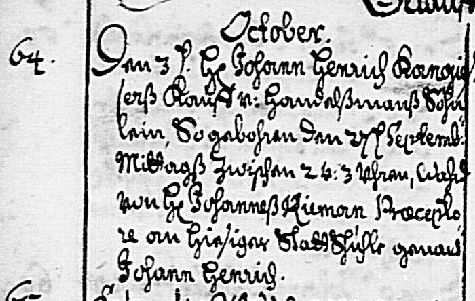 October.
64. Den 3t. H. Johann Henrich
Kauff u: Handelßmanß Söhn
lein, So gebohren den 27t Septemb.
Mittagß zwischen 2 u: 3 Uhren, Ward
von H. Johanneß Nieman Præcepto
re an hiesiger Stadt Schuhle genan
Johann Henrich.